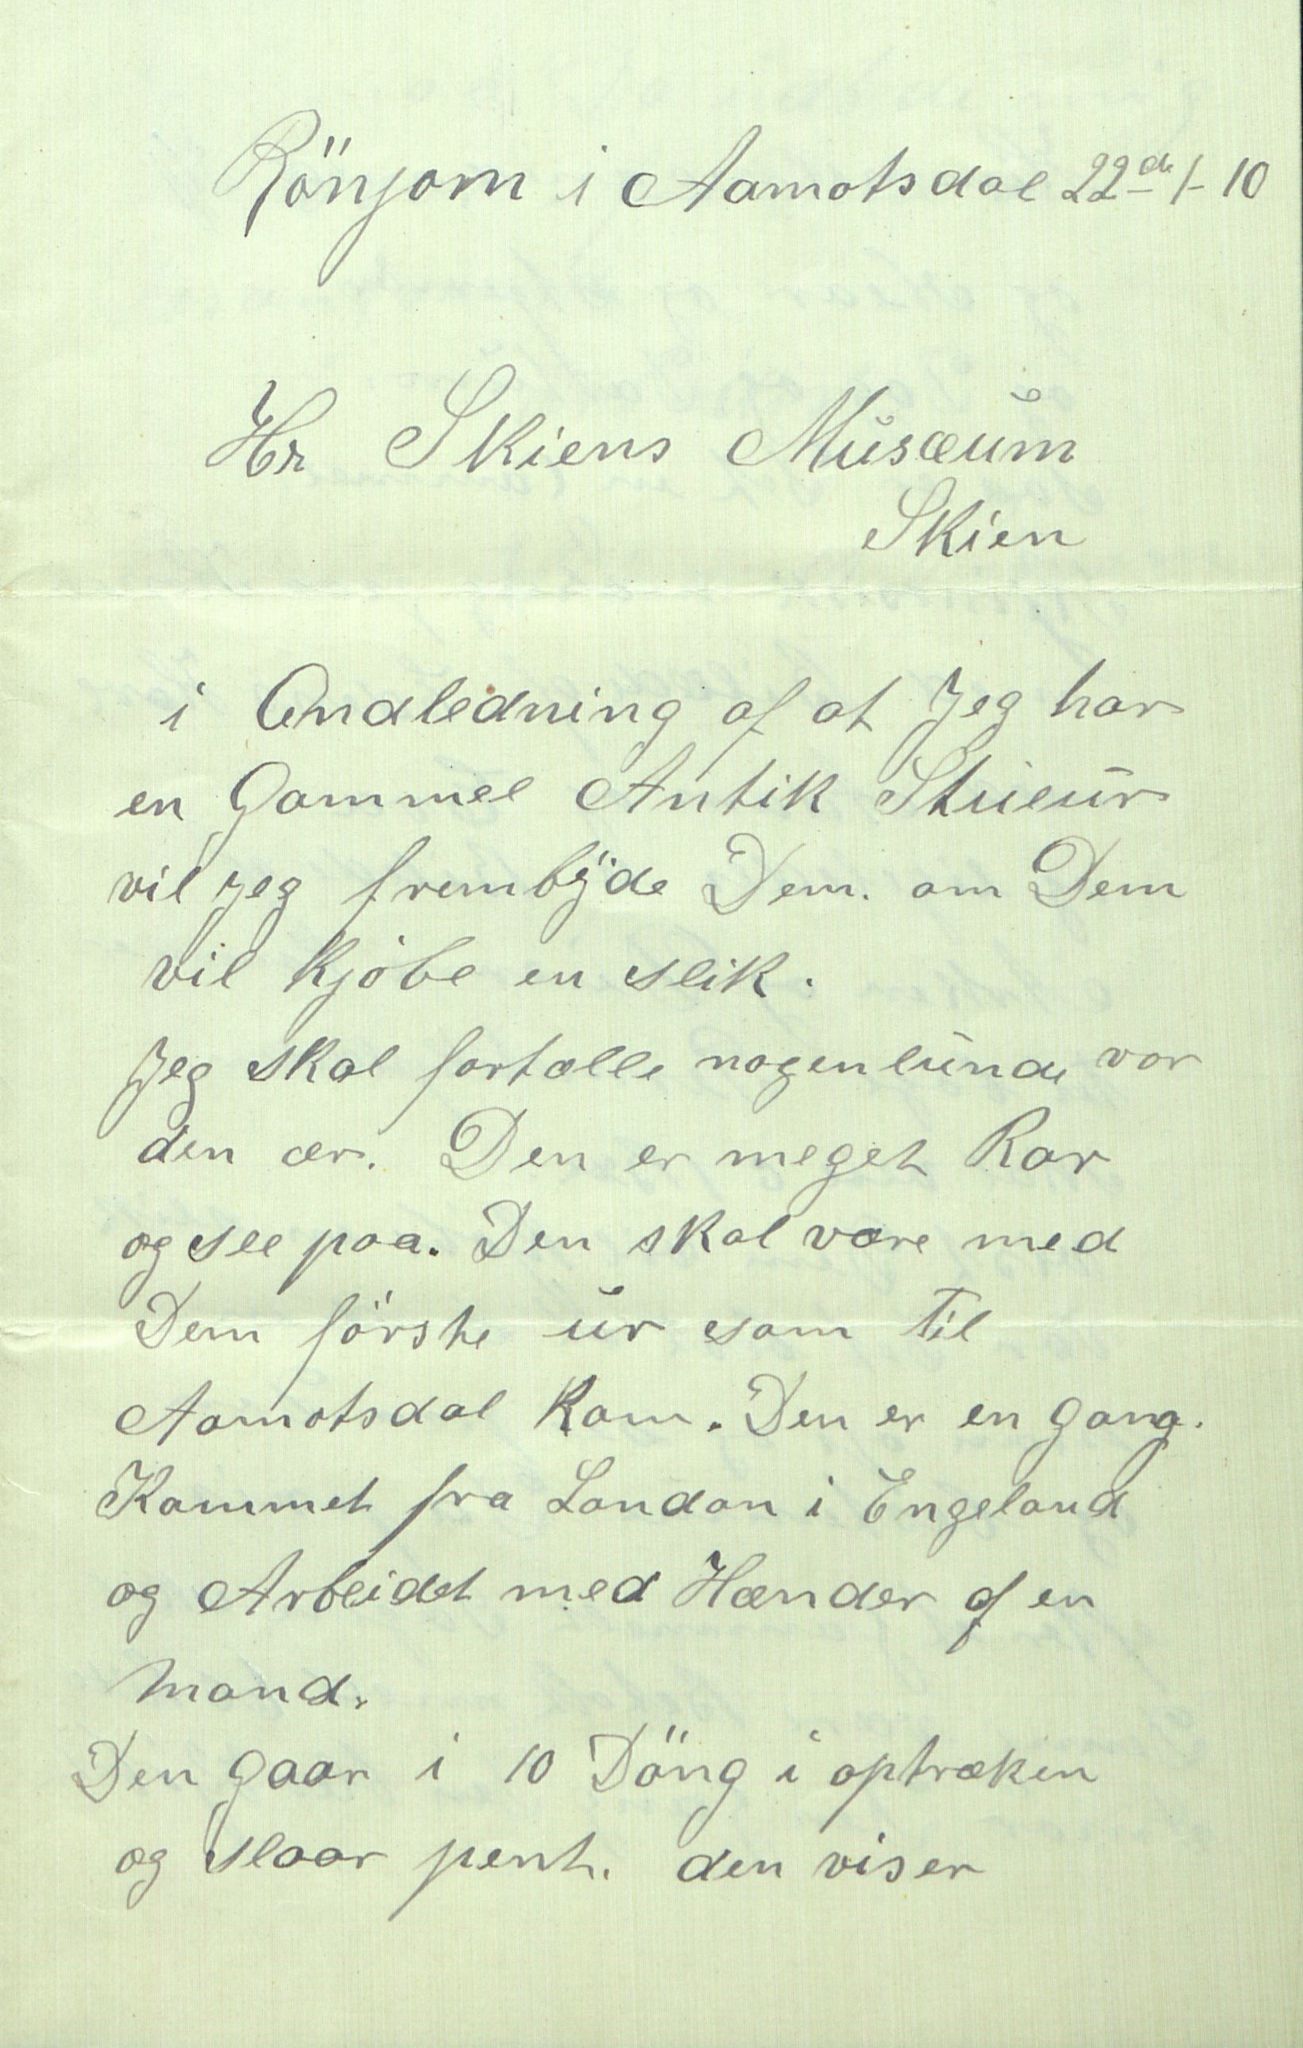 Rönjom i Aamotsdal 22de/- 10
Hr Skiens Musæum
Skien
i Andledning af at Jeg har
en Gammel Antik Stueur
vil jeg frembÿde Dem. om Dem
vil kjöbe en slik.
Jeg skal fortælle nogenlunde vor
den ær. Den er meget Rar
og see paa. Den skal være med
Dem förste ur som til
Aamotsdal kom. Den er en gang.
Kommet fra London i Engeland
og Arbeidet med Hænder af en
Mand.
Den gaar i 10 Döng i optræken
og slaar pent. den viser